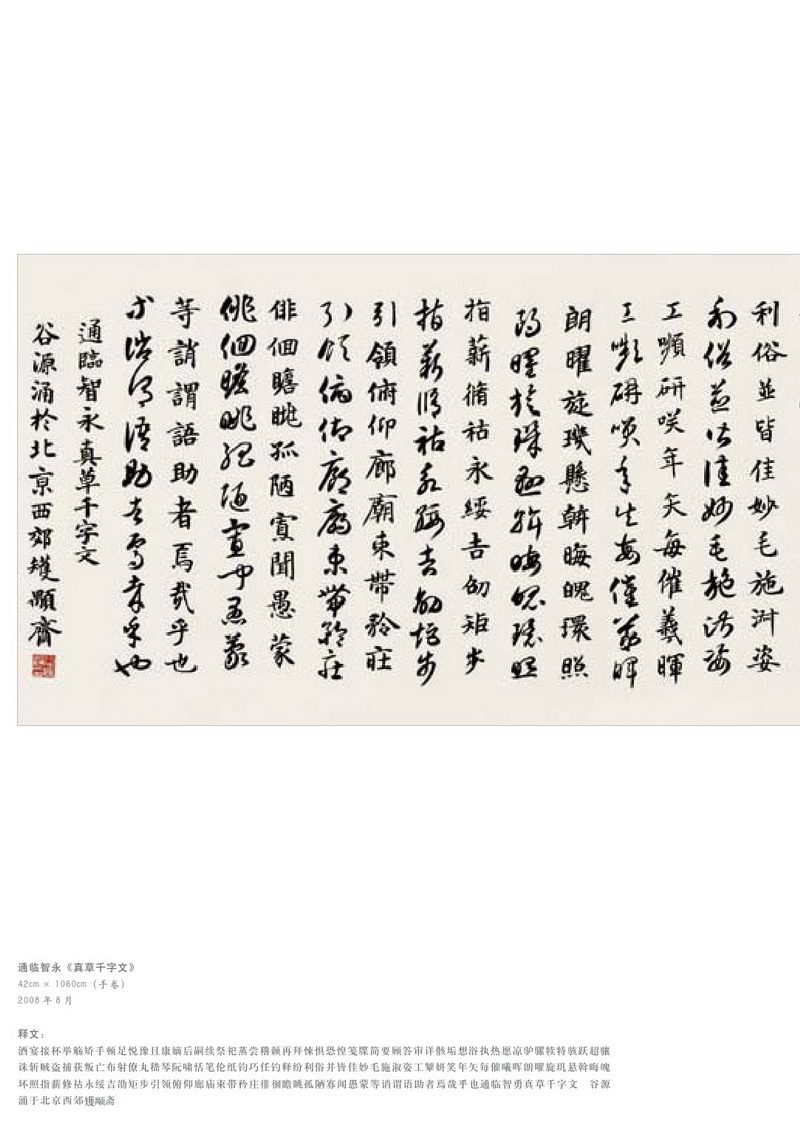 利俗並皆佳妙毛施淑姿
利俗並皆佳妙毛施淑姿
工嚬研咲年矢每催羲暉
工嚬研咲年矢每催羲暉
朗曜旋璣懸斡晦魄環照
朗曜旋璣懸斡晦魄環照
指薪脩祜永綏吉劭矩步
指薪脩祜永綏吉劭矩步
引領俯仰廊廟束帶矜莊
引領俯仰廊廟束帶矜莊
俳佪瞻眺孤陋寡聞愚蒙
俳佪瞻眺孤陋寡聞愚蒙
等誚謂語助者焉哉乎也
等誚謂語助者焉哉乎也
通臨智永真草千字文
谷源涌於北京西郊齋
通临智永《真草千字文》
42cm × 1060cm（手卷）
2008 年 8 月
释文：
酒宴接杯举觞矫手顿足悦豫且康嫡后嗣续祭祀蒸尝稽颡再拜悚惧恐惶笺牒简要顾答审详骸垢想浴执热愿凉驴骡犊特骇跃超骧
诛斩贼盗捕获叛亡布射僚丸嵇琴阮啸恬笔伦纸钧巧任钓释纷利俗并皆佳妙毛施淑姿工颦妍笑年矢每催曦晖朗曜旋玑悬斡晦魄
环照指薪修祜永绥吉劭矩步引领俯仰廊庙束带矜庄徘徊瞻眺孤陋寡闻愚蒙等诮谓语助者焉哉乎也通临智勇真草千字文　谷源
涌于北京西郊矱顺斋